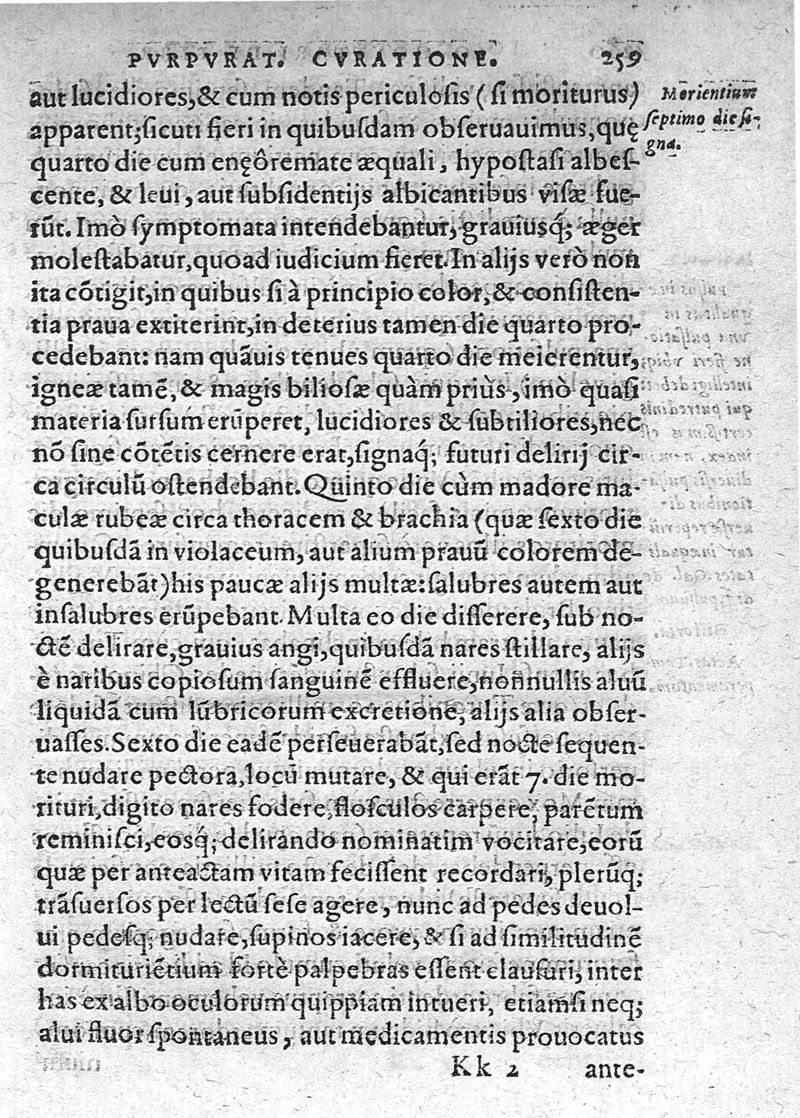 PVRPVRAT. CVRATIONE. 259
aut lucidiores,& cum notis periculosis (si moriturus)
apparent;sicuti fieri in quibusdam obseruauimus,quę
quarto die cum enęôremate æquali, hypostasi albes-
cente, & leui, aut subsidentijs albicantibus visæ fue-
rũt. Imò symptomata intendebantur, grauiusq́; æger
molestabatur,quoad iudicium fieret.In alijs verò non
ita cõtigit,in quibus si à principio color,& consisten-
tia praua extiterint,in deterius tamen die quarto pro-
cedebant: nam quãuis tenues quarto die meierentur,
igneæ tamẽ, & magis biliosæ quàm priùs, imò quasi
materia sursum erũperet, lucidiores & subtiliores,nec
nõ sine cõtẽtis cernere erat,signaq́; futuri delirij cir-
ca circulũ ostendebant. Quinto die cùm madore ma-
culæ rubeæ circa thoracem & brachia (quæ sexto die
quibusdã in violaceum, aut alium prauũ colorem de-
generebãt)his paucæ alijs multæ:salubres autem aut
insalubres erũpebant. Multa eo die differere, sub no-
ctẽ delirare,grauius angi,quibusdã nares stillare, alijs
è naribus copiosum sanguinẽ effluere,nonnullis aluũ
liquidã cum lũbricorum excretione, alijs alia obser-
uasses. Sexto die eadẽ perseuerabãt, sed nocte sequen-
te nudare pectora,locũ mutare, & qui erãt 7. die mo-
rituri,digito nares fodere,flosculos carpere, parẽtum
reminisci,eosq́; delirando nominatim vocitare,eorũ
quæ per anteactam vitam fecissent recordari, plerũq;
trãsuersos per lectũ sese agere, nunc ad pedes deuol-
ui pedesq; nudare, supinos iacere, & si ad similitudinẽ
dormituriẽtium fortè palpebras essent clausuri, inter
has ex albo oculorum quippiam intueri, etiamsi neq;
alui fluor spontaneus, aut medicamentis prouocatus
Kk 2 ante-
Morientium
septimo die si-
gna.